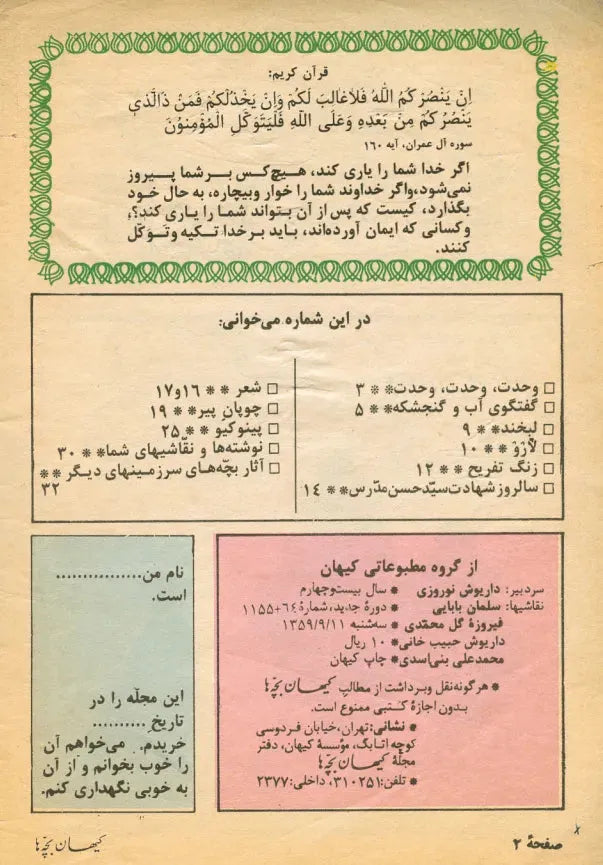 قرآن کریم:
اِنْ يَنْصُرْكُمُ اللّٰهُ فَلاٰ غٰالِبَ لَكُمْ وَاِنْ يَخْذُلْكُمْ فَمَنْ ذَا الَّذي
يَنْصُرُكُمْ مِنْ بَعْدِهِ وَعَلَى اللّٰهِ فَلْيَتَوَكَّلِ الْمُؤْمِنُونَ
سوره آل عمران، آیه ۱۶۰
اگر خدا شما را یاری کند، هیچ‌کس بر شما پیروز
نمی‌شود، واگر خداوند شما را خوار وبیچاره، به حال خود
بگذارد، کیست که پس از آن بتواند شما را یاری کند؟،
وکسانی که ایمان آورده‌اند، باید برخدا تکیه وتوکّل
کنند.
در این شماره می‌خوانی:
□ وحدت، وحدت، وحدت** ۳
□ گفتگوی آب و گنجشکه** ۵
□ لبخند** ۹
□ لاَرْوْ ** ۱۰
□ زنگ تفریح ** ۱۲
□ سالروز شهادت سیّدحسن مدّرس** ۱۴
□ شعر ** ۱۶و۱۷
□ چوپان پیر** ۱۹
□ پینوکیو ** ۲۵
□ نوشته‌ها و نقّاشیهای شما** ۳۰
□ آثار بچّه‌های سرزمینهای دیگر **
۳۲
از گروه مطبوعاتی کیهان
سردبیر: داریوش نوروزی * سال بیست‌وچهارم
نقاشیها: سلمان بابایی * دورهٔ جدید، شمارهٔ ۶۴+۱۱۵۵
فیروزهٔ گل محمّدی * سه‌شنبه ۱۳۵۹/۹/۱۱
داریوش حبیب خانی* ۱۰ ریال
محمدعلی بنی‌اسدی * چاپ کیهان
* هرگونه‌نقل وبرداشت از مطالب کیهان بچّه‌ها
بدون اجازهٔ کتبی ممنوع است.
* نشانی: تهران، خیابان فردوسی
کوچه اتابک، مؤسسهٔ کیهان، دفتر
مجلهٔ کیهان بچّه‌ها
* تلفن: ۳۱۰۲۵۱، داخلی: ۲۳۷۷
نام من................
است.
این مجلّه را در
تاریخ ..........
خریدم. می‌خواهم آن
را خوب بخوانم و از آن
به خوبی نگهداری کنم.
صفحهٔ ۲
کیهان بچّه‌ها